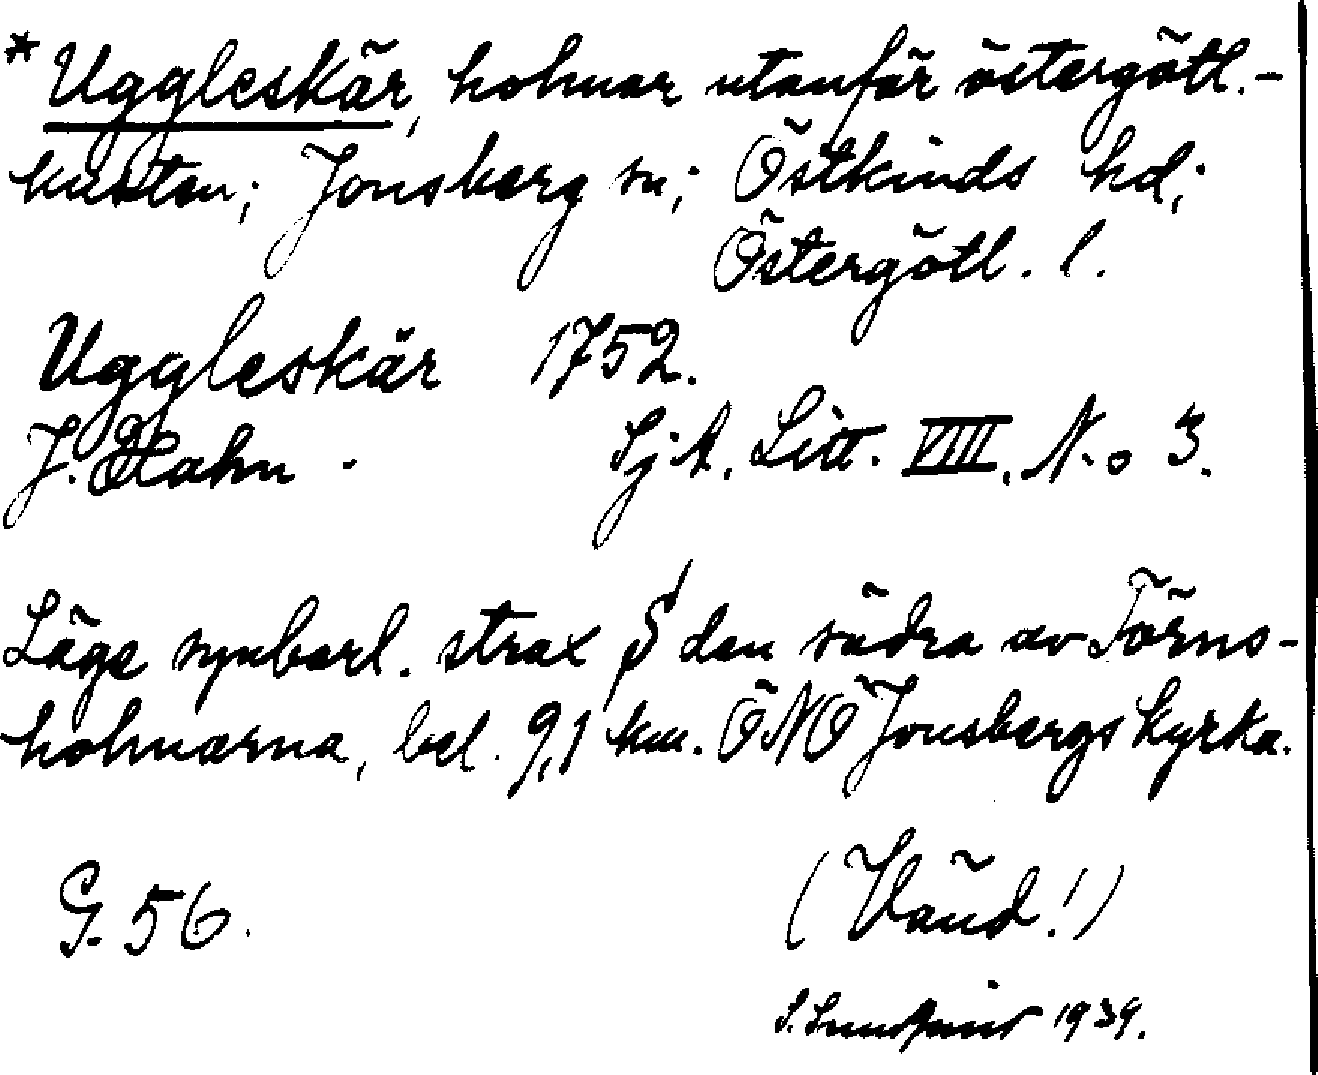 * Uggleskär, holmar utanför östergötl.-
kusten; Jonsberg sn; Östkinds hd;
Östergötl. l.
Uggleskär 1752.
J. Hahn. SjA. Litt. VIII. N.o 3.
Läge synbarl. strax S den södra av Törns-
holmarna, bel. 9,1 km. ÖNÖ Jonsbergs kyrka.
G. 56. (Vänd!)
S. 1939.